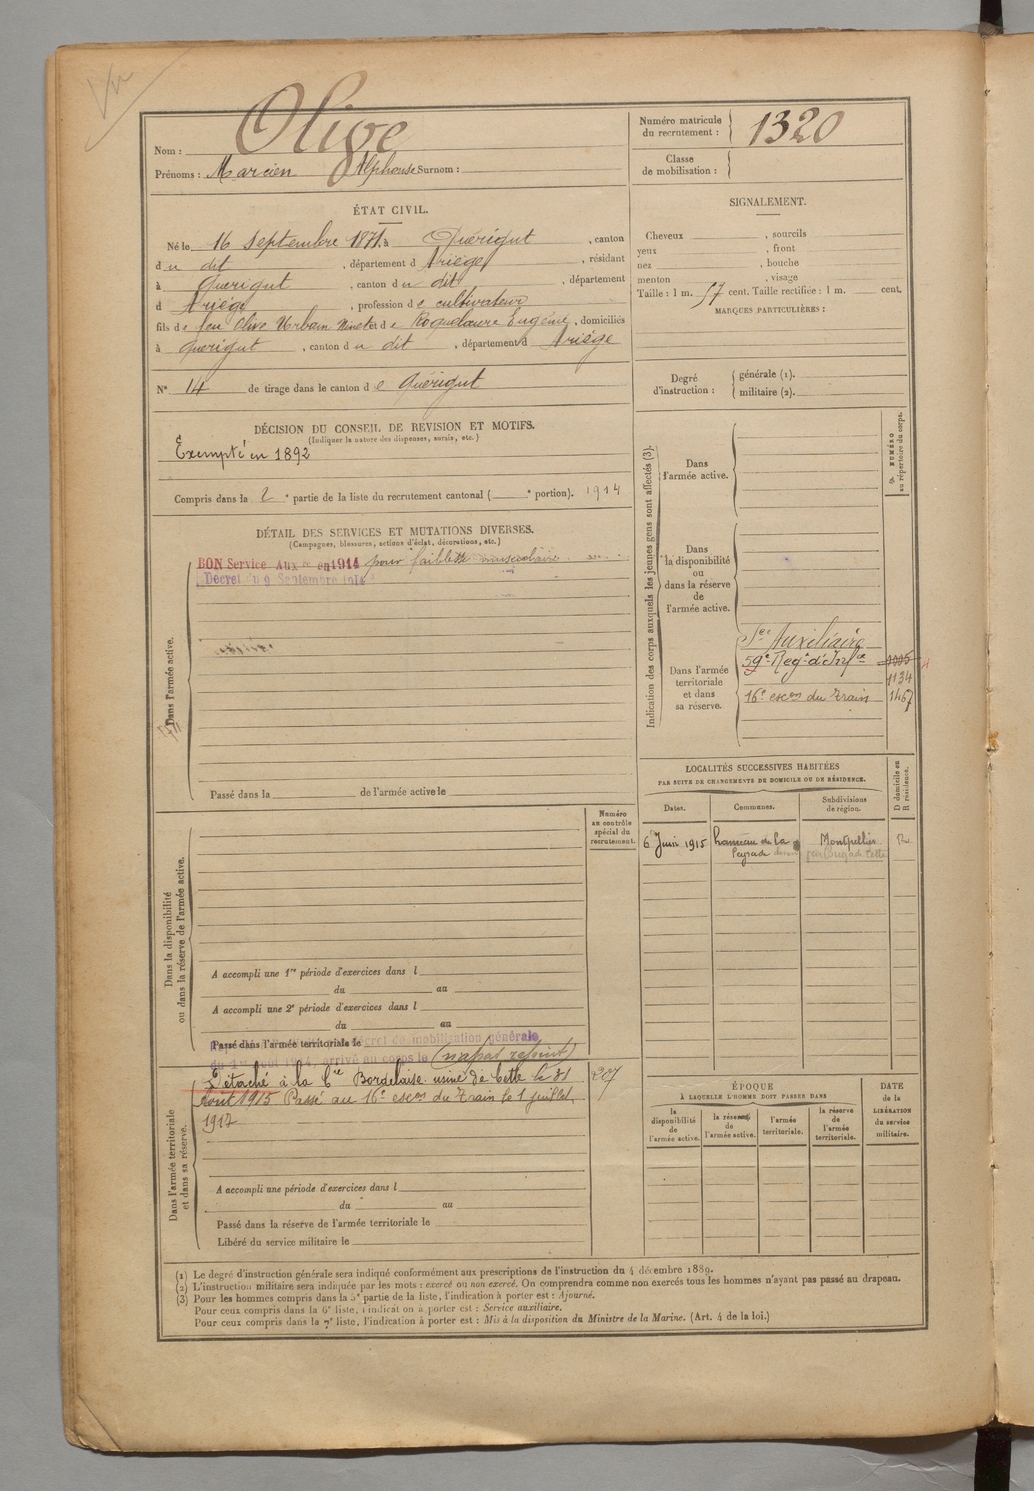 Nom : Olive
Prénoms : Marcien Alphonse Surnom :
Numéro matricule du recrutement : 1320
Classe de mobilisation :
ÉTAT CIVIL.
Né le 16 Septembre 1871, à Quérigut, canton
du dit, département d Ariège, résidant
à Quérigut, canton du dit, département
d Ariège, profession de cultivateur
fils de feu Olive Urbain et de Roquelaure Eugénie, domiciliés
à Quérigut, canton du dit, département d Ariège
N° 14 de tirage dans le canton de Quérigut
SIGNALEMENT.
Cheveux , sourcils
yeux , front
nez , bouche
menton , visage
Taille : 1 m. 57 cent. Taille rectifiée : 1 m. cent.
MARQUES PARTICULIÈRES :
Degré d'instruction : générale (1).
militaire (2).
DÉCISION DU CONSEIL DE REVISION ET MOTIFS.
(Indiquer la nature des dispenses, sursis, etc.)
Exempté en 1892
Compris dans la 2e partie de la liste du recrutement cantonal ( e portion). 1914
DÉTAIL DES SERVICES ET MUTATIONS DIVERSES.
(Campagnes, blessures, actions d'éclat, décorations, etc.)
BON Service Auxre en 1914 pour faiblesse musculaire
Décret du 9 Septembre 1914
Dans l'armée active.
Passé dans la de l'armée active le
Numéro au contrôle spécial du recrutement.
Dans la disponibilité ou dans la réserve de l'armée active.
A accompli une 1re période d'exercices dans l
du au
A accompli une 2e période d'exercices dans l
du au
Passé dans l'armée territoriale le
décret de mobilisation générale
du 1er août 1914, arrivé au corps le (n'a pas rejoint)
Dans l'armée territoriale et dans sa réserve.
Détaché à la Cie Bordelaise usine de Cette le 31 207
Août 1915 Passé au 16e escon du Train le 1 juillet
1917
A accompli une période d'exercices dans l
du au
Passé dans la réserve de l'armée territoriale le
Libéré du service militaire le
Indication des corps auxquels les jeunes gens sont affectés (3).
NUMÉRO au répertoire du corps.
Dans l'armée active.
Dans la disponibilité ou dans la réserve de l'armée active.
Dans l'armée territoriale et dans sa réserve.
Sce Auxiliaire
59e Regt d'Infie
1134
16e escon du Train 1467
LOCALITÉS SUCCESSIVES HABITÉES
PAR SUITE DE CHANGEMENTS DE DOMICILE OU DE RÉSIDENCE.
D domicile ou R résidence.
Dates. Communes. Subdivisions de région.
6 Juin 1915 hameau de la Montpellier R.
Peyrade
ÉPOQUE
À LAQUELLE L'HOMME DOIT PASSER DANS
la disponibilité de l'armée active.
la réserve de l'armée active.
l'armée territoriale.
la réserve de l'armée territoriale.
DATE de la LIBÉRATION du service militaire.
(1) Le degré d'instruction générale sera indiqué conformément aux prescriptions de l'instruction du 4 décembre 1889.
(2) L'instruction militaire sera indiquée par les mots : exercé ou non exercé. On comprendra comme non exercés tous les hommes n'ayant pas passé au drapeau.
(3) Pour les hommes compris dans la 5e partie de la liste, l'indication à porter est : Ajourné.
Pour ceux compris dans la 6e liste, l'indication à porter est : Service auxiliaire.
Pour ceux compris dans la 7e liste, l'indication à porter est : Mis à la disposition du Ministre de la Marine. (Art. 4 de la loi.)